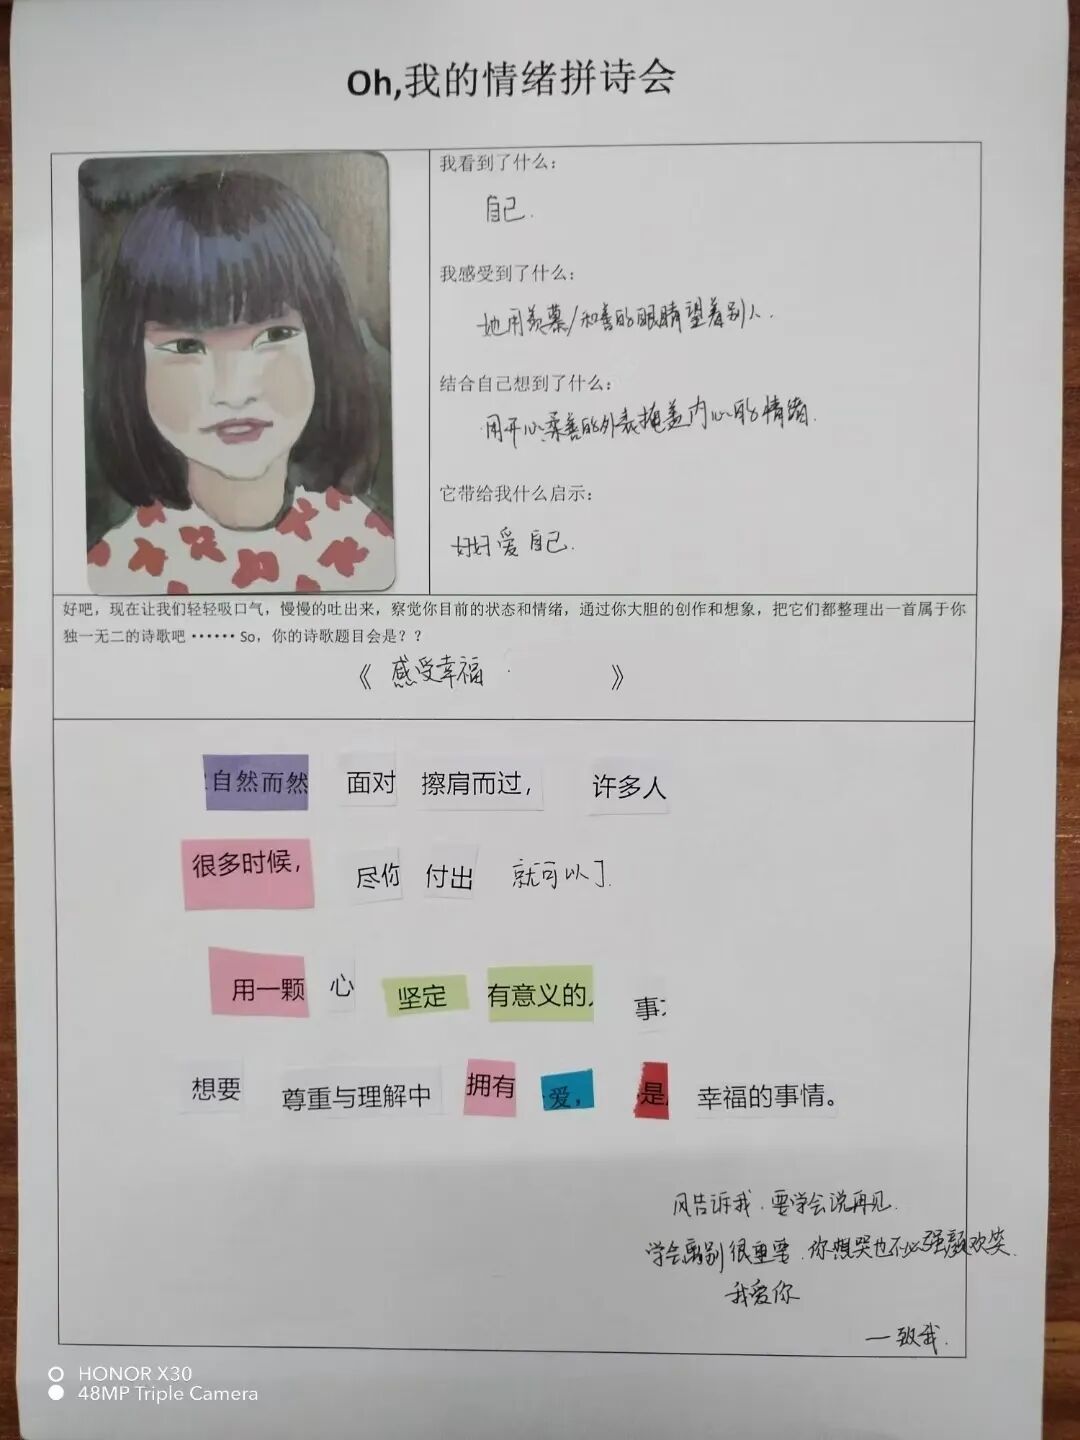 Oh,我的情绪拼诗会
我看到了什么：
自己.
我感受到了什么：
她用羡慕/和善的眼睛望着别人.
结合自己想到了什么：
用开心柔善的外表掩盖内心的情绪.
它带给我什么启示：
好好爱自己.
好吧，现在让我们轻轻吸口气，慢慢的吐出来，察觉你目前的状态和情绪，通过你大胆的创作和想象，把它们都整理出一首属于你
独一无二的诗歌吧 ······ So，你的诗歌题目会是？？
《 感受幸福 》
自然而然 面对 擦肩而过， 许多人
很多时候， 尽你 付出 就可以了.
用一颗 心 坚定 有意义的 事
想要 尊重与理解中 拥有 爱， 是 幸福的事情。
风告诉我.要学会说再见.
学会离别很重要.你想哭也不必强颜欢笑.
我爱你
—致我.
HONOR X30
48MP Triple Camera